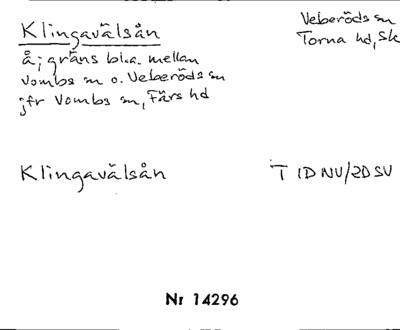 Klingavälsån
Veberöds sn
Torna hd, Sk
Å; gräns bl.a. mellan
Vombs sn o. Veberöds sn
jfr Vombs sn, Färs hd
Klingavälsån
T 1D NV/2D SV
Nr 14296